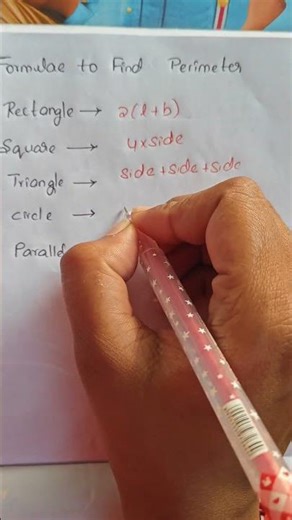 Formulae to Find Perimeter
Rectangle → 2(l+b)
Square → 4xside
Triangle → side+side+side
circle →
Paralle